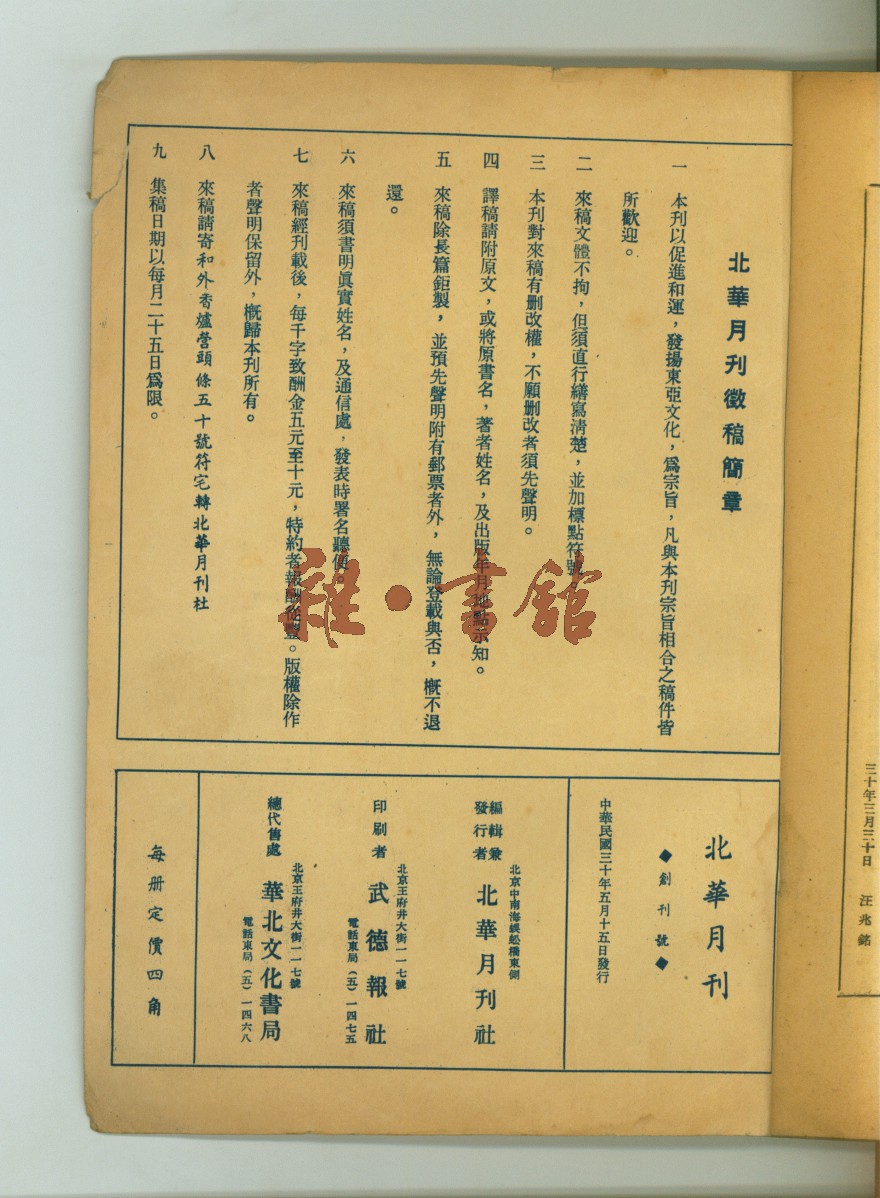 三十年三月三十日　汪兆銘
北華月刊徵稿簡章
一　本刊以促進和運，發揚東亞文化，爲宗旨，凡與本刊宗旨相合之稿件皆
所歡迎。
二　來稿文體不拘，但須直行繕寫清楚，並加標點符號
三　本刊對來稿有刪改權，不願刪改者須先聲明。
四　譯稿請附原文，或將原書名，著者姓名，及出版年月地點示知。
五　來稿除長篇鉅製，並預先聲明附有郵票者外，無論登載與否，概不退
還。
六　來稿須書明眞實姓名，及通信處，發表時署名聽便。
七　來稿經刊載後，每千字致酬金五元至十元，特約者報酬從豐。版權除作
者聲明保留外，概歸本刊所有。
八　來稿請寄和外香爐營頭條五十號符宅轉北華月刊社
九　集稿日期以每月二十五日爲限。
雜·書館
北華月刊
◆創刊號◆
中華民國三十年五月十五日發行
北京中南海蜈蚣橋東側
編輯兼
發行者　北華月刊社
北京王府井大街一一七號
印刷者　武德報社
電話東局（五）一四七五
北京王府井大街一一七號
總代售處　華北文化書局
電話東局（五）一四六八
每册定價四角